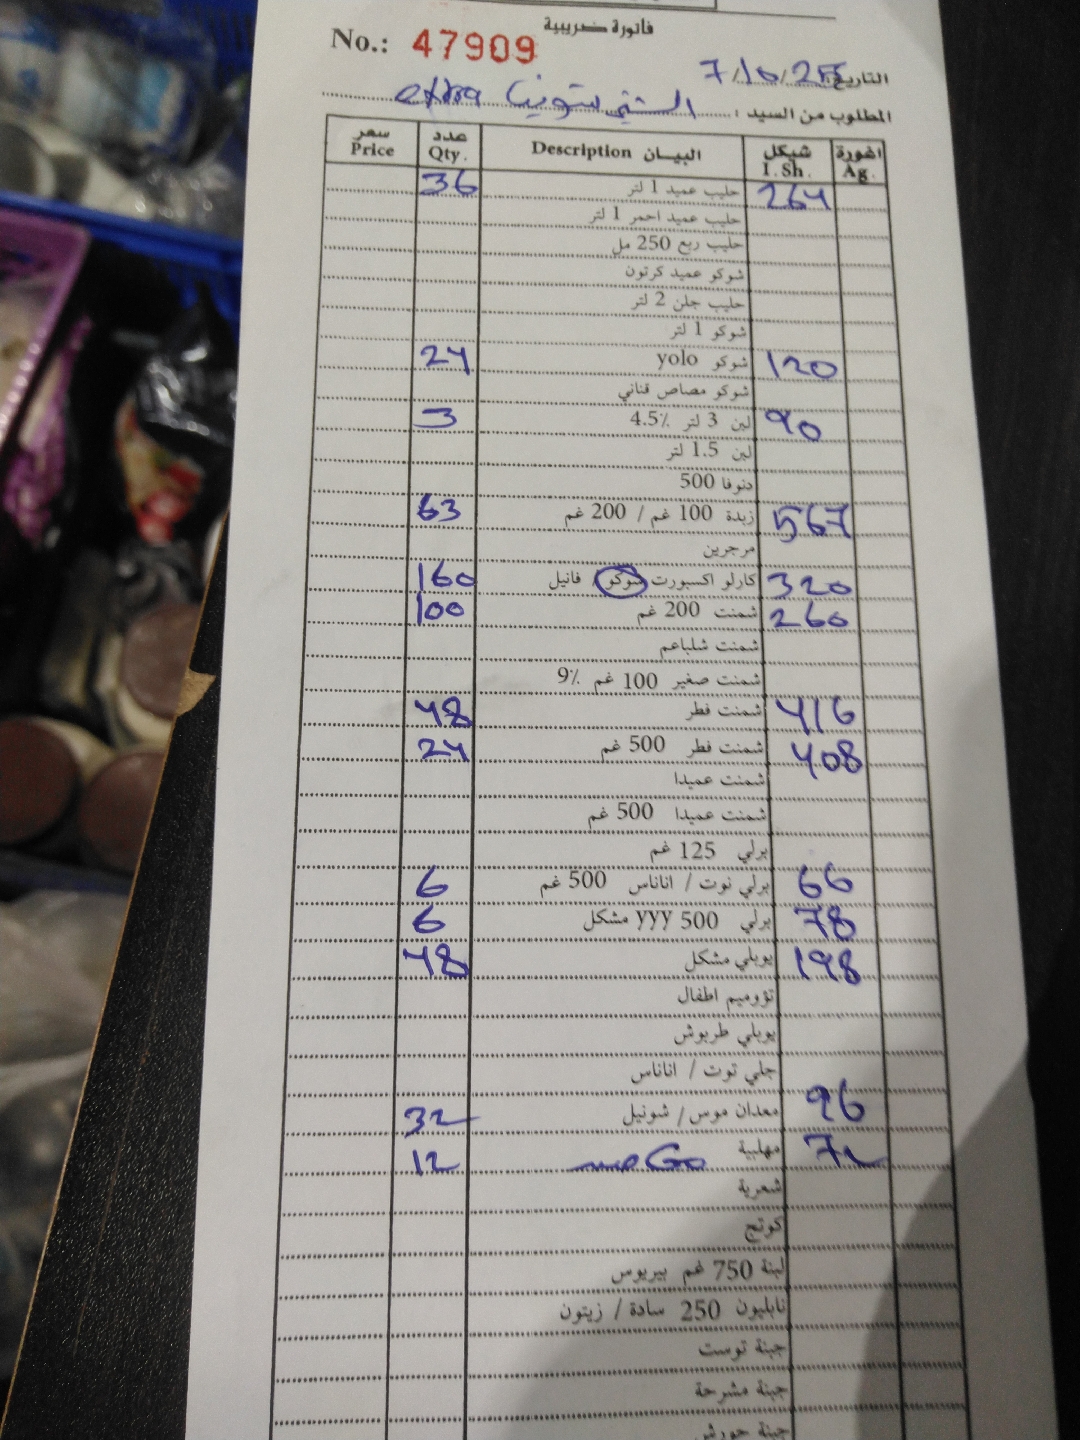 فاتورة ضريبية
No.: 47909
التاريخ: 7/10/25
المطلوب من السيد : extra
اغورة Ag. شيكل I. Sh. البيـــان Description عدد Qty. سعر Price
264 حليب عميد 1 لتر 36
حليب عميد احمر 1 لتر
حليب ربع 250 مل
شوكو عميد كرتون
حليب جلن 2 لتر
شوكو 1 لتر
120 شوكو yolo 24
شوكو مصاص قناني
90 لبن 3 لتر 4.5٪ 3
لبن 1.5 لتر
دنوفا 500
567 زبدة 100 غم / 200 غم 63
مرجرين
320 كارلو اكسبورت شوكو / فانيل 160
260 شمنت 200 غم 100
شمنت شلباعم
شمنت صغير 100 غم 9٪
416 شمنت فطر 48
408 شمنت فطر 500 غم 24
شمنت عميدا
شمنت عميدا 500 غم
برلي 125 غم
66 برلي توت / اناناس 500 غم 6
78 برلي 500 yyy مشكل 6
198 يوبلي مشكل 48
تؤوميم اطفال
يوبلي طربوش
جلي توت / اناناس
96 معدان موس / شونيل 32
72 مهلبية 12
شعرية
كوتج
لبنة 750 غم بيريوس
نابليون 250 سادة / زيتون
جبنة توست
جبنة مشرحة
جبنة حورش